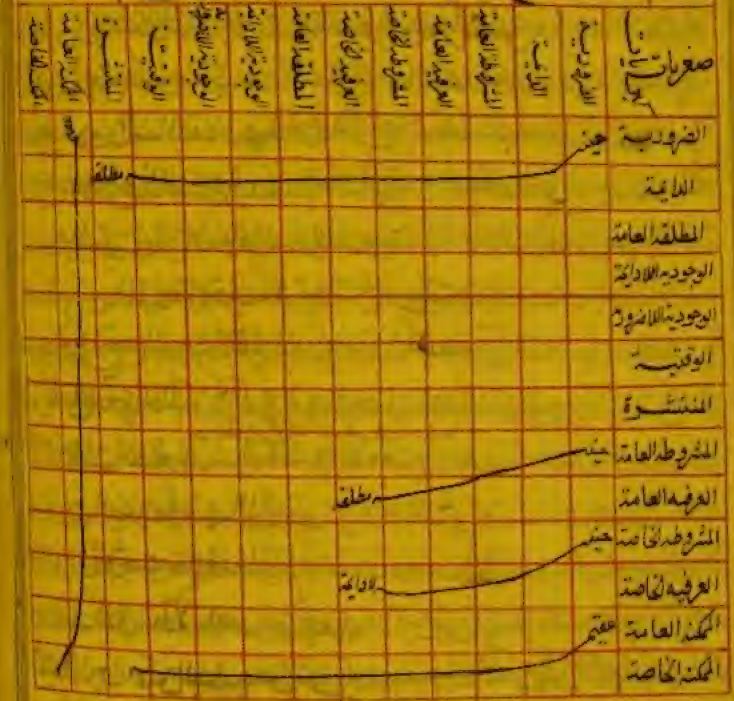 صغريات
كبريات
الضرورية
الدايمة
المشروطه العامة
العرفيه العامة
المشروطه الخاصة
العرفيه الخاصة
المطلقه العامة
الوجوديه اللادايمة
الوجوديه اللاضرورية
الوقتيــة
المنتشرة
الممكنه العامة
الممكنه الخاصة
الضرورية حينيه
الدايمة مطلقه
المطلقه العامة
الوجوديه اللادايمة
الوجوديه اللاضرورة
الوقتيــة
المنتشــرة
المشروطه العامة حينيه
العرفيه العامة مطلقه
المشروطه الخاصة حينيه
العرفيه الخاصة لادايمة
الممكنه العامة عقيم
الممكنه الخاصة